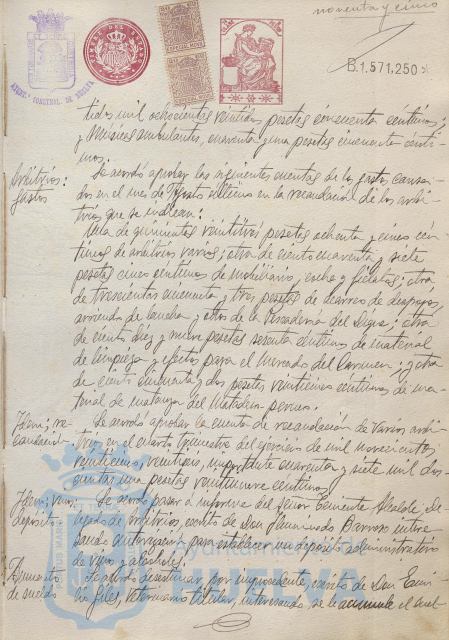 noventa y cinco
B.1.571.250
TIMBRE DEL ESTADO
ESPECIAL MOVIL
ESPECIAL MOVIL
AYUNTº CONSTNAL. DE HUELVA
tidos mil ochocientas veintiún pesetas cincuenta centimos;
y Músicos ambulantes, cuarenta y una pesetas cincuenta cénti-
mos.
Arbitrios:
gastos
Se acordó aprobar las siguientes cuentas de los gastos causa-
dos en el mes de Agosto último en la recaudación de los arbi-
trios que se indican:
Una de quinientas veintitrés pesetas ochenta y cinco cén-
timos de arbitrios varios; otra de ciento cuarenta y siete
pesetas cinco céntimos de Mobiliario, coche y fielatos; otra
de trescientas cincuenta y tres pesetas de acarreo de despojos,
arriendo de lancha y otros de la Pescadería del Dique; otra
de ciento diez y nueve pesetas sesenta céntimos de material
de limpieza y efectos para el Mercado del Carmen; y otra
de ciento cincuenta y dos pesetas veinticinco céntimos de ma-
terial de matanza del Matadero
Idem; re-
caudación
Se acordó aprobar la cuenta de recaudación de varios arbi-
trios en el cuarto trimestre del ejercicio de mil novecientos
veinticinco, veintiseis, importante cuarenta y siete mil dos-
cientas una pesetas veintinueve céntimos.
Idem; vinos:
depósito
Se acordó pasar a informe del Señor Teniente Alcalde De-
legado de arbitrios, escrito de Don Barroso intere-
sando autorización para establecer un depósito administrativo
de vinos y alcoholes.
Aumento
de sueldo
Se acordó desestimar, por improcedente, escrito de Don
Giles, Veterinario titular, interesando se le acumule el suel-
PORTUS MARIS
Ayuntamiento de
HUELVA